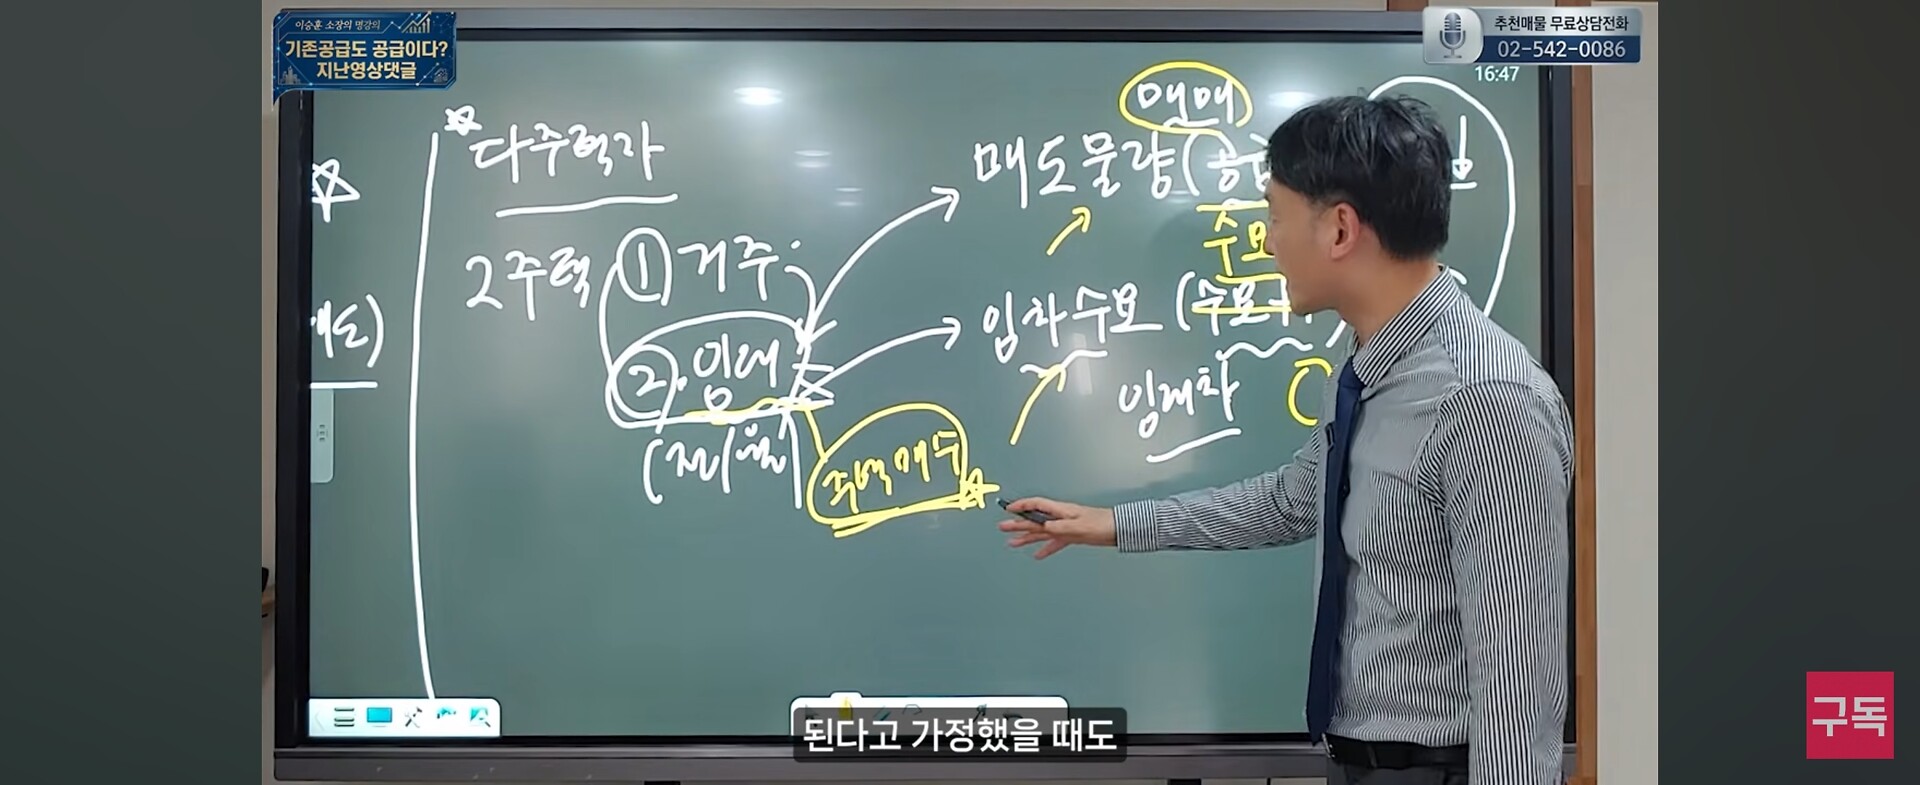 이승훈 소장의 명강의
기존공급도 공급이다?
지난영상댓글
추천매물 무료상담전화
02-542-0086
16:47
매매
다주택자
매도물량(공급
수요
2주택 ① 거주
임차수요 (수요
② 임대
임대차
(전/월
주택매수
된다고 가정했을 때도
구독